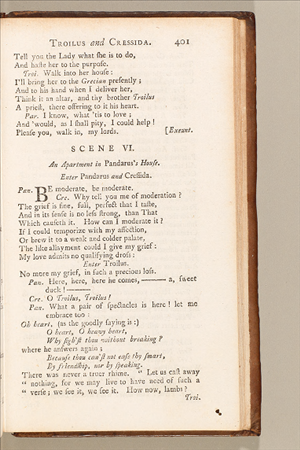 TROILUS and CRESSIDA. 401
Tell you the Lady what ſhe is to do,
And haſte her to the purpoſe.
Troi. Walk into her houſe:
I'll bring her to the Grecian preſently;
And to his hand when I deliver her,
Think it an altar, and thy brother Troilus
A prieſt, there offering to it his heart.
Par. I know, what 'tis to love;
And 'would, as I ſhall pity, I could help!
Pleaſe you, walk in, my lords. [Exeunt.
SCENE VI.
An Apartment in Pandarus's Houſe.
Enter Pandarus and Creſſida.
Pan. BE moderate, be moderate.
Cre. Why tell you me of moderation?
The grief is fine, full, perfect that I taſte,
And in its ſenſe is no leſs ſtrong, than That
Which cauſeth it. How can I moderate it?
If I could temporize with my affection,
Or brew it to a weak and colder palate,
The like allayment could I give my grief:
My love admits no qualifying droſs:
Enter Troilus.
No more my grief, in ſuch a precious loſs.
Pan. Here, here, here he comes,——a, ſweet
duck!——
Cre. O Troilus, Troilus!
Pan. What a pair of ſpectacles is here! let me
embrace too:
Oh heart, (as the goodly ſaying is:)
O heart, O heavy heart,
Why ſigh'ſt thou without breaking?
where he anſwers again;
Becauſe thou can'ſt not eaſe thy ſmart,
By friendſhip, nor by ſpeaking.
There was never a truer rhime. " Let us caſt away
" nothing, for we may live to have need of ſuch a
" verſe; we ſee it, we ſee it. How now, lambs?
Troi.